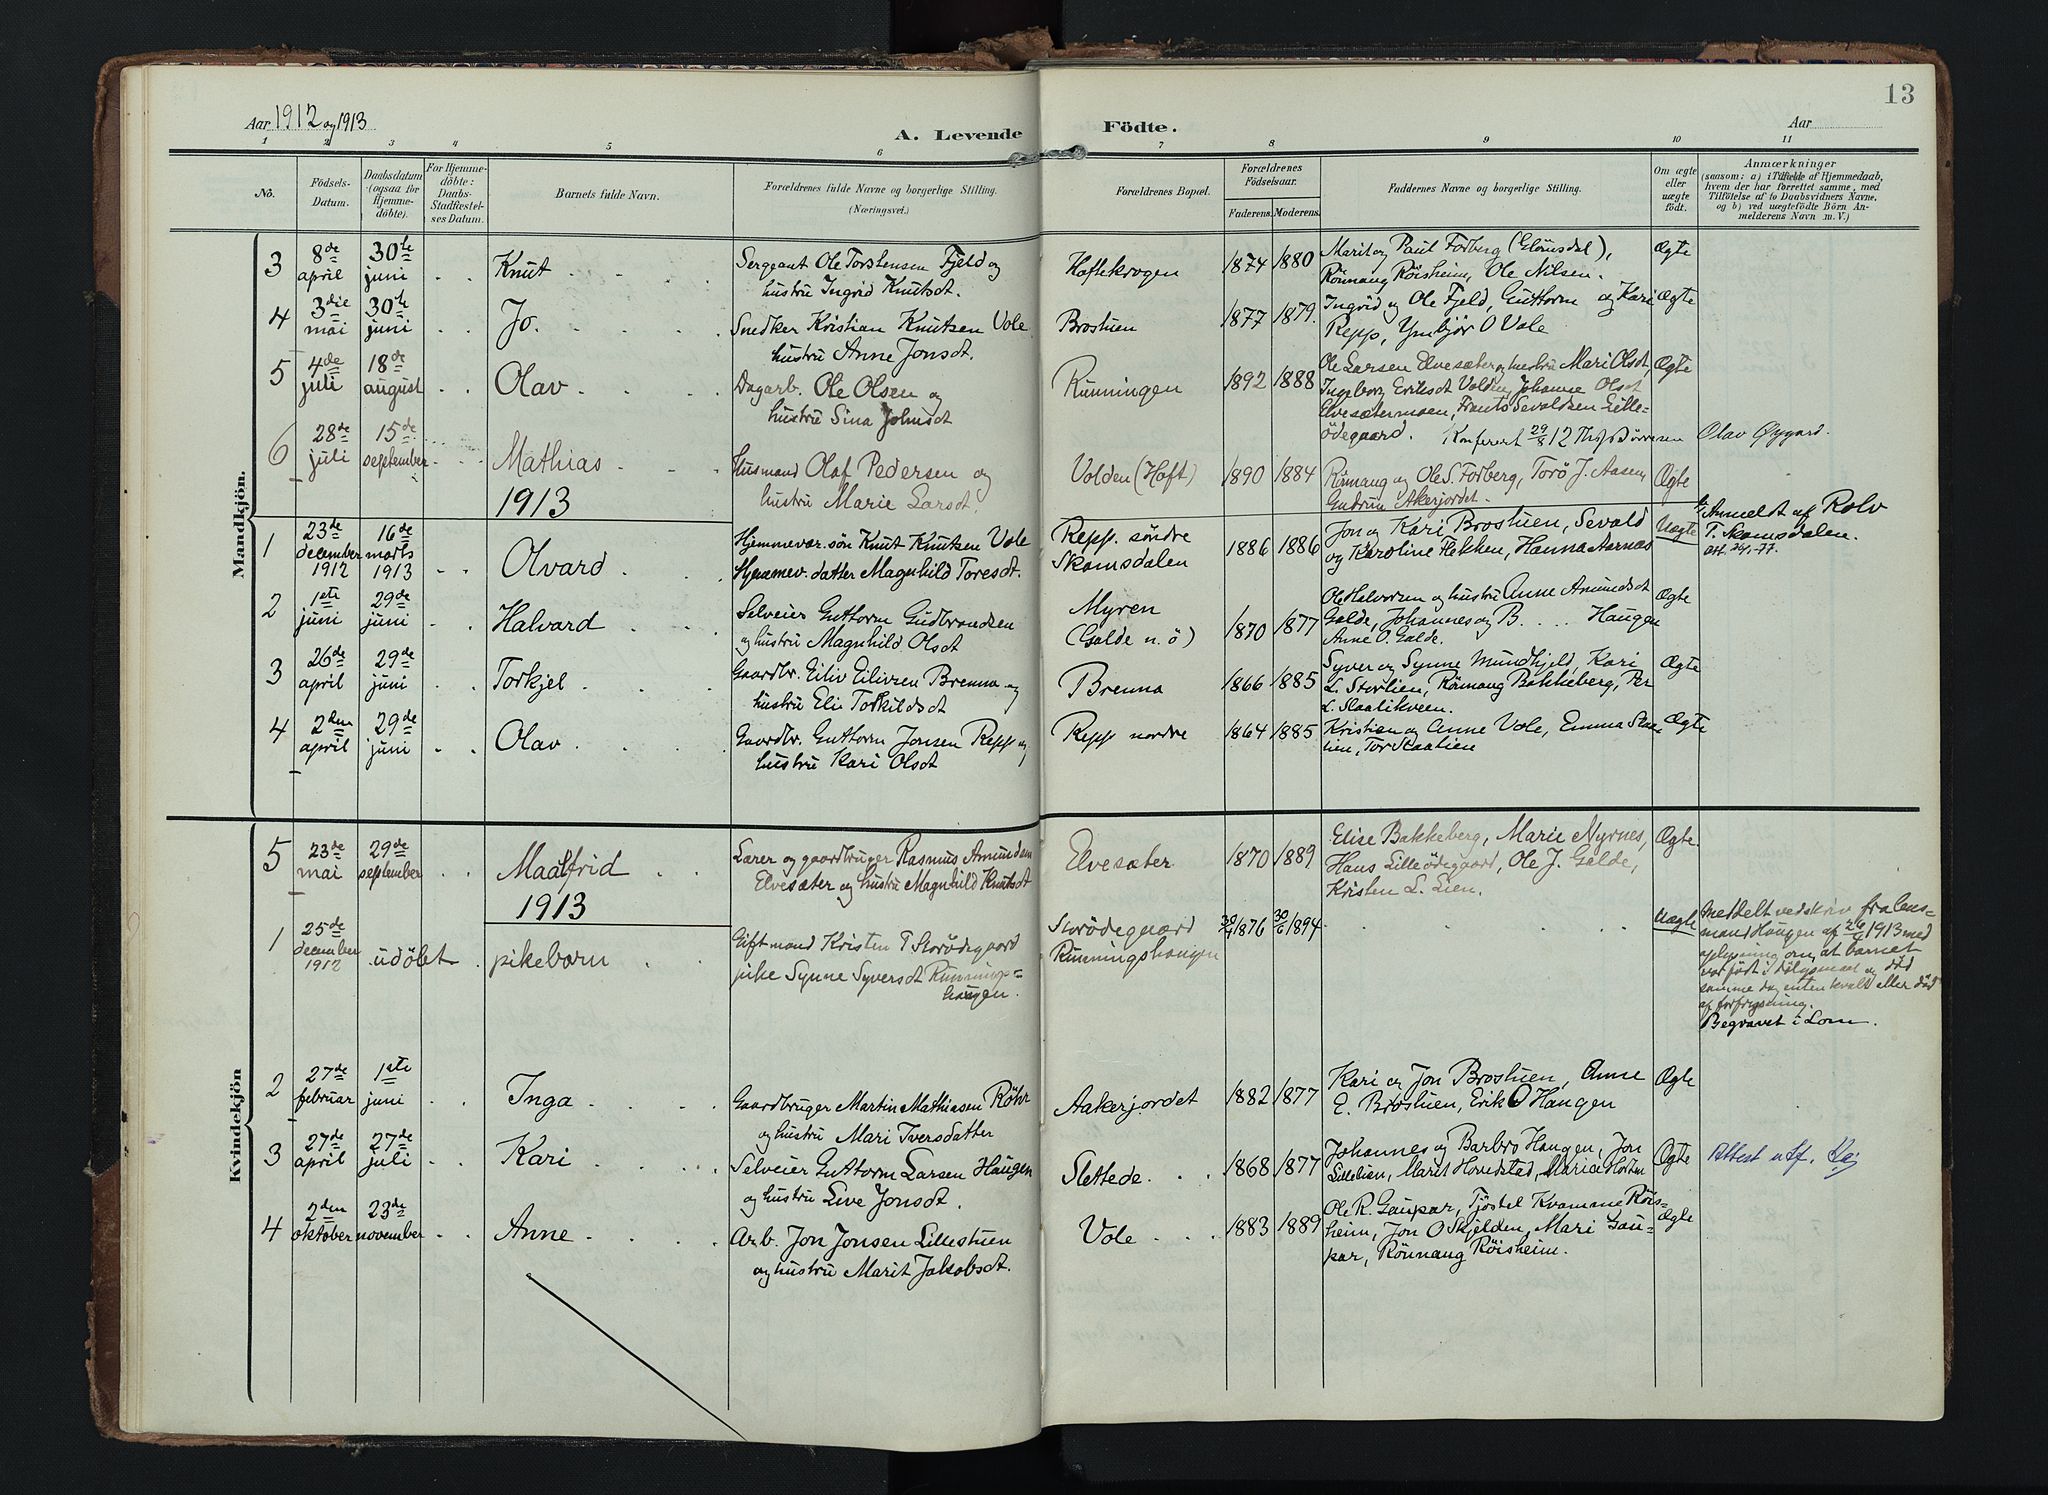 13
Aar 1912 og 1913
A. Levende Födte.
Aar
1 2 3 4 5 6 7 8 9 10 11
No.
Födsels-
Datum.
Daabsdatum
(ogsaa for
Hjemme-
döbte).
For Hjemme-
döbte:
Daabs-
Stadfæstel-
ses Datum.
Barnets fulde Navn.
Forældrenes fulde Navne og borgerlige Stilling.
(Næringsvei.)
Forældrenes Bopæl.
Forældrenes
Födselsaar.
Faderens. Moderens.
Faddernes Navne og borgerlige Stilling.
Om ægte
eller
uægte
födt.
Anmærkninger
(saasom: a) i Tilfælde af Hjemmedaab,
hvem der har forrettet samme, med
Tilföielse af to Daabsvidners Navne,
og b) ved uægtefödte Börn An-
melderens Navn m. V.)
Mandkjön.
3 8de april 30te juni Knut
Sergeant Ole Torstensen Fjeld og
hustru Ingrid Knutsdt.
Haftekrogen 1874 1880
Marit og Paul Forberg (Glømsdal),
Rönnaug Röisheim, Ole Nilsen.
Ægte
4 3die mai 30te juni Jo.
Snedker Kristian Knutsen Vole
hustru Anne Jonsdt.
Brostuen 1877 1879.
Ingrid og Ole Fjeld, Guttorm og Kari
Repp, Ymbjör O Vole
Ægte
5 4de juli 18de august Olav
Dagarb. Ole Olsen og
hustru Sina Johnsdt
Runningen 1892 1888
Ole Larsen Elvesæter og hustru Mari Olsdt,
Ingeborg Eriksdt Volden, Johanne Olsdt
Elvesætermoen, Frants Sevaldsen Lille-
ödegaard. Konferert 29/8 12
Ægte
Olav Øygard.
6 28de juli 15de september Mathias
Husmand Olaf Pedersen og
hustru Marie Larsdt.
Volden (Haft) 1890 1884
Rönnaug og Ole S. Forberg, Torö J. Aasen,
Gudrun Akerjordet.
Ægte
1913
1 23de december 1912 16de marts 1913 Olvard
Hjemmevær. søn Knut Knutsen Vole
Hjemmev. datter Magnhild Toresdt.
Repp. søndre
Skamsdalen
1886 1886
Jon og Kari Brostuen, Sevald
og Karoline Flekken, Hanna Aarnæs
Uægte
Anmeldt af Rolv
T. Skamsdalen.
Att. 24/1-77.
2 1ste juni 29de juni Halvard
Selveier Guttorm Gudbrandsen
og hustru Magnhild Olsdt
Myren
(Galde n. ö)
1870 1877
Ole Halvorsen og hustru Anne Amundsdt
Galde, Johannes og B. . . . Haugen
Anne O. Galde.
Ægte
3 26de april 29de juni Torkjel
Gaardbr. Eiliv Eilivsen Brenna og
hustru Eli Torkildsdt
Brenna 1866 1885
Syver og Synne Mundhjeld, Kari
L. Storlien, Rönnaug Bakkeberg, Per
L. Slaalikveen.
Ægte
4 2den april 29de juni Olav
Gaardbr. Guttorm Jonsen Repp og
hustru Kari Olsdt
Repp nordre 1864 1885
Kristian og Anne Vole, Emma Slaa-
lien, Tor Slaalien
Ægte
Kvindekjön
5 23de mai 29de september Maalfrid
Lærer og gaardbruger Rasmus Amundsen
Elvesæter og hustru Magnhild Knutsdt
Elvesæter 1870 1889
Elise Bakkeberg, Marie Myrnes,
Hans Lilleödegaard, Ole J. Galde,
Kristen L. Lien.
Ægte.
1913
1 25de december 1912 udöbt pikebarn
Gift mand Kristen T Storödegaard
pike Synne Syversdt Runnings-
haugen.
Storödegaard
Runningshaugen
1876 30/6 1894
Uægte
Meddelt ved skriv fra lens-
mand Haugen af 26/6 1913 med
oplysning om, at barnet
var født i dölgsmaal og död
samme dag enten kvalt eller död
af forfrysning.
Begravet i Lom.
2 27de februar 1ste juni Inga
Gaardbruger Martin Mathiasen Röhr
og hustru Mari Iversdatter
Aakerjordet 1882 1877
Kari og Jon Brostuen, Anne
E. Brostuen, Erik O Haugen
Ægte
3 27de april 27de juli Kari
Selveier Guttorm Larsen Haugen
og hustru Live Jonsdt.
Slettede 1868 1877
Johannes og Barbro Haugen, Jon
Lillelien, Marit Hovestad, Maria Holtm
Ægte
Attest utf.
4 2den oktober 23de november Anne
Arb. Jon Jonsen Lillestuen
og hustru Marit Jakobsdt.
Vole 1883 1889
Ole R. Gaupar, Tjöstel Kvamme Röis-
heim, Jon O Skjelden, Mari Gau-
par, Rönnaug Röisheim.
Ægte